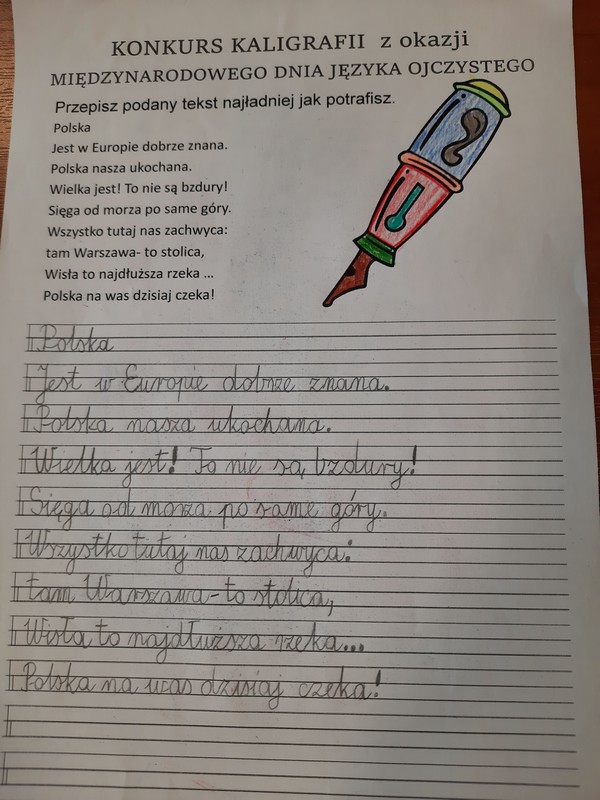 KONKURS KALIGRAFII z okazji
MIĘDZYNARODOWEGO DNIA JĘZYKA OJCZYSTEGO
Przepisz podany tekst najładniej jak potrafisz.
Polska
Jest w Europie dobrze znana.
Polska nasza ukochana.
Wielka jest! To nie są bzdury!
Sięga od morza po same góry.
Wszystko tutaj nas zachwyca:
tam Warszawa- to stolica,
Wisła to najdłuższa rzeka ...
Polska na was dzisiaj czeka!
Polska
Jest w Europie dobrze znana.
Polska nasza ukochana.
Wielka jest! To nie są bzdury!
Sięga od morza po same góry.
Wszystko tutaj nas zachwyca:
tam Warszawa- to stolica,
Wisła to najdłuższa rzeka...
Polska na was dzisiaj czeka!